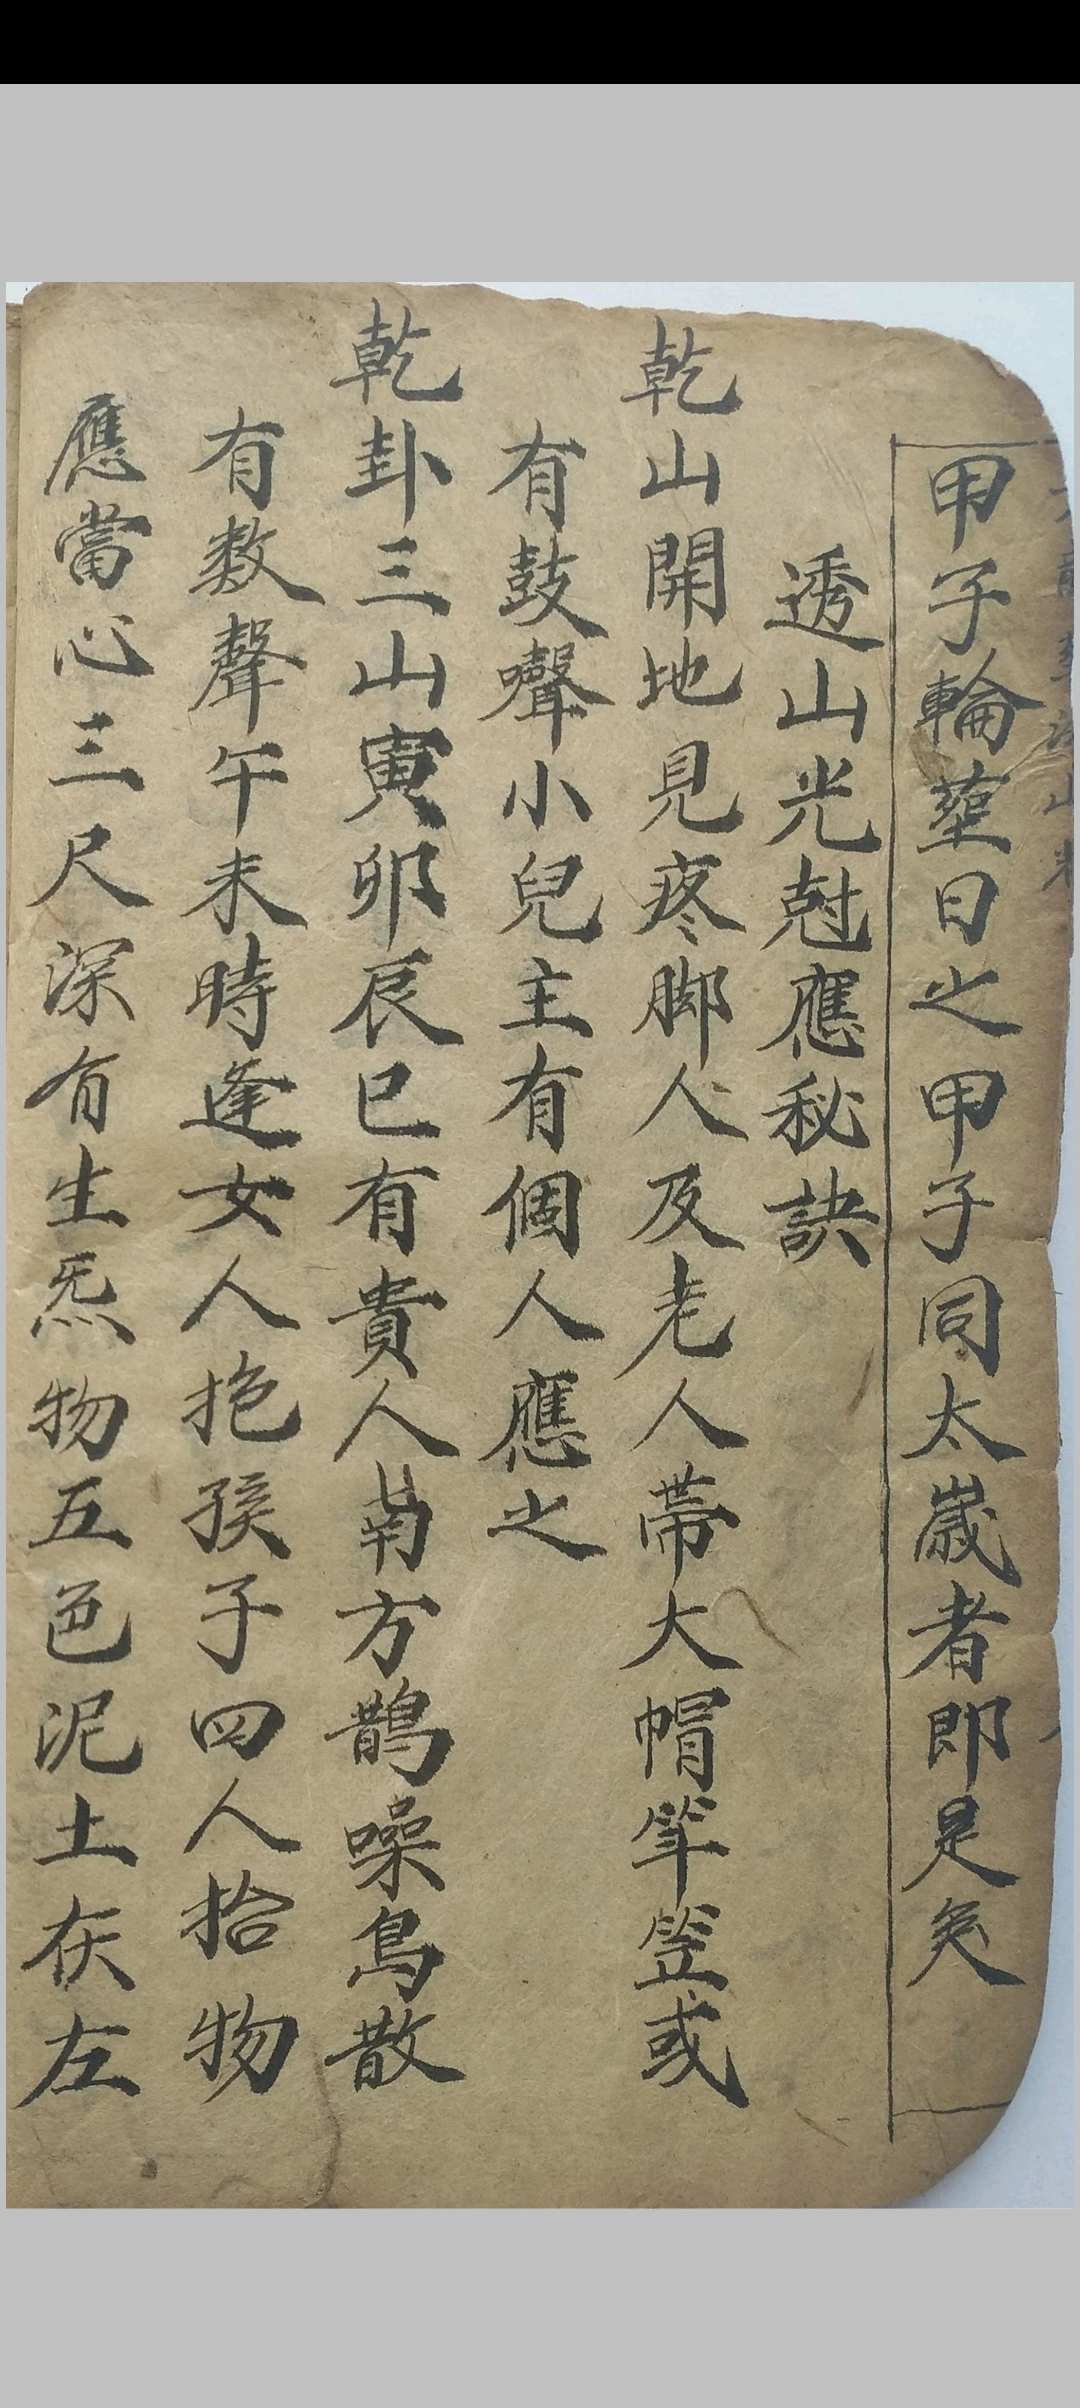 甲子輪塟日之甲子同太歲者即是矣
透山光尅應秘訣
乾山開地見疼脚人及老人帶大帽笠或
有鼓聲小兒主有個人應之
乾卦三山寅卯辰巳有貴人南方鵲噪鳥散
有数聲午未時逢女人抱孩子四人拾物
應當心三尺深有生炁物五色泥土在左